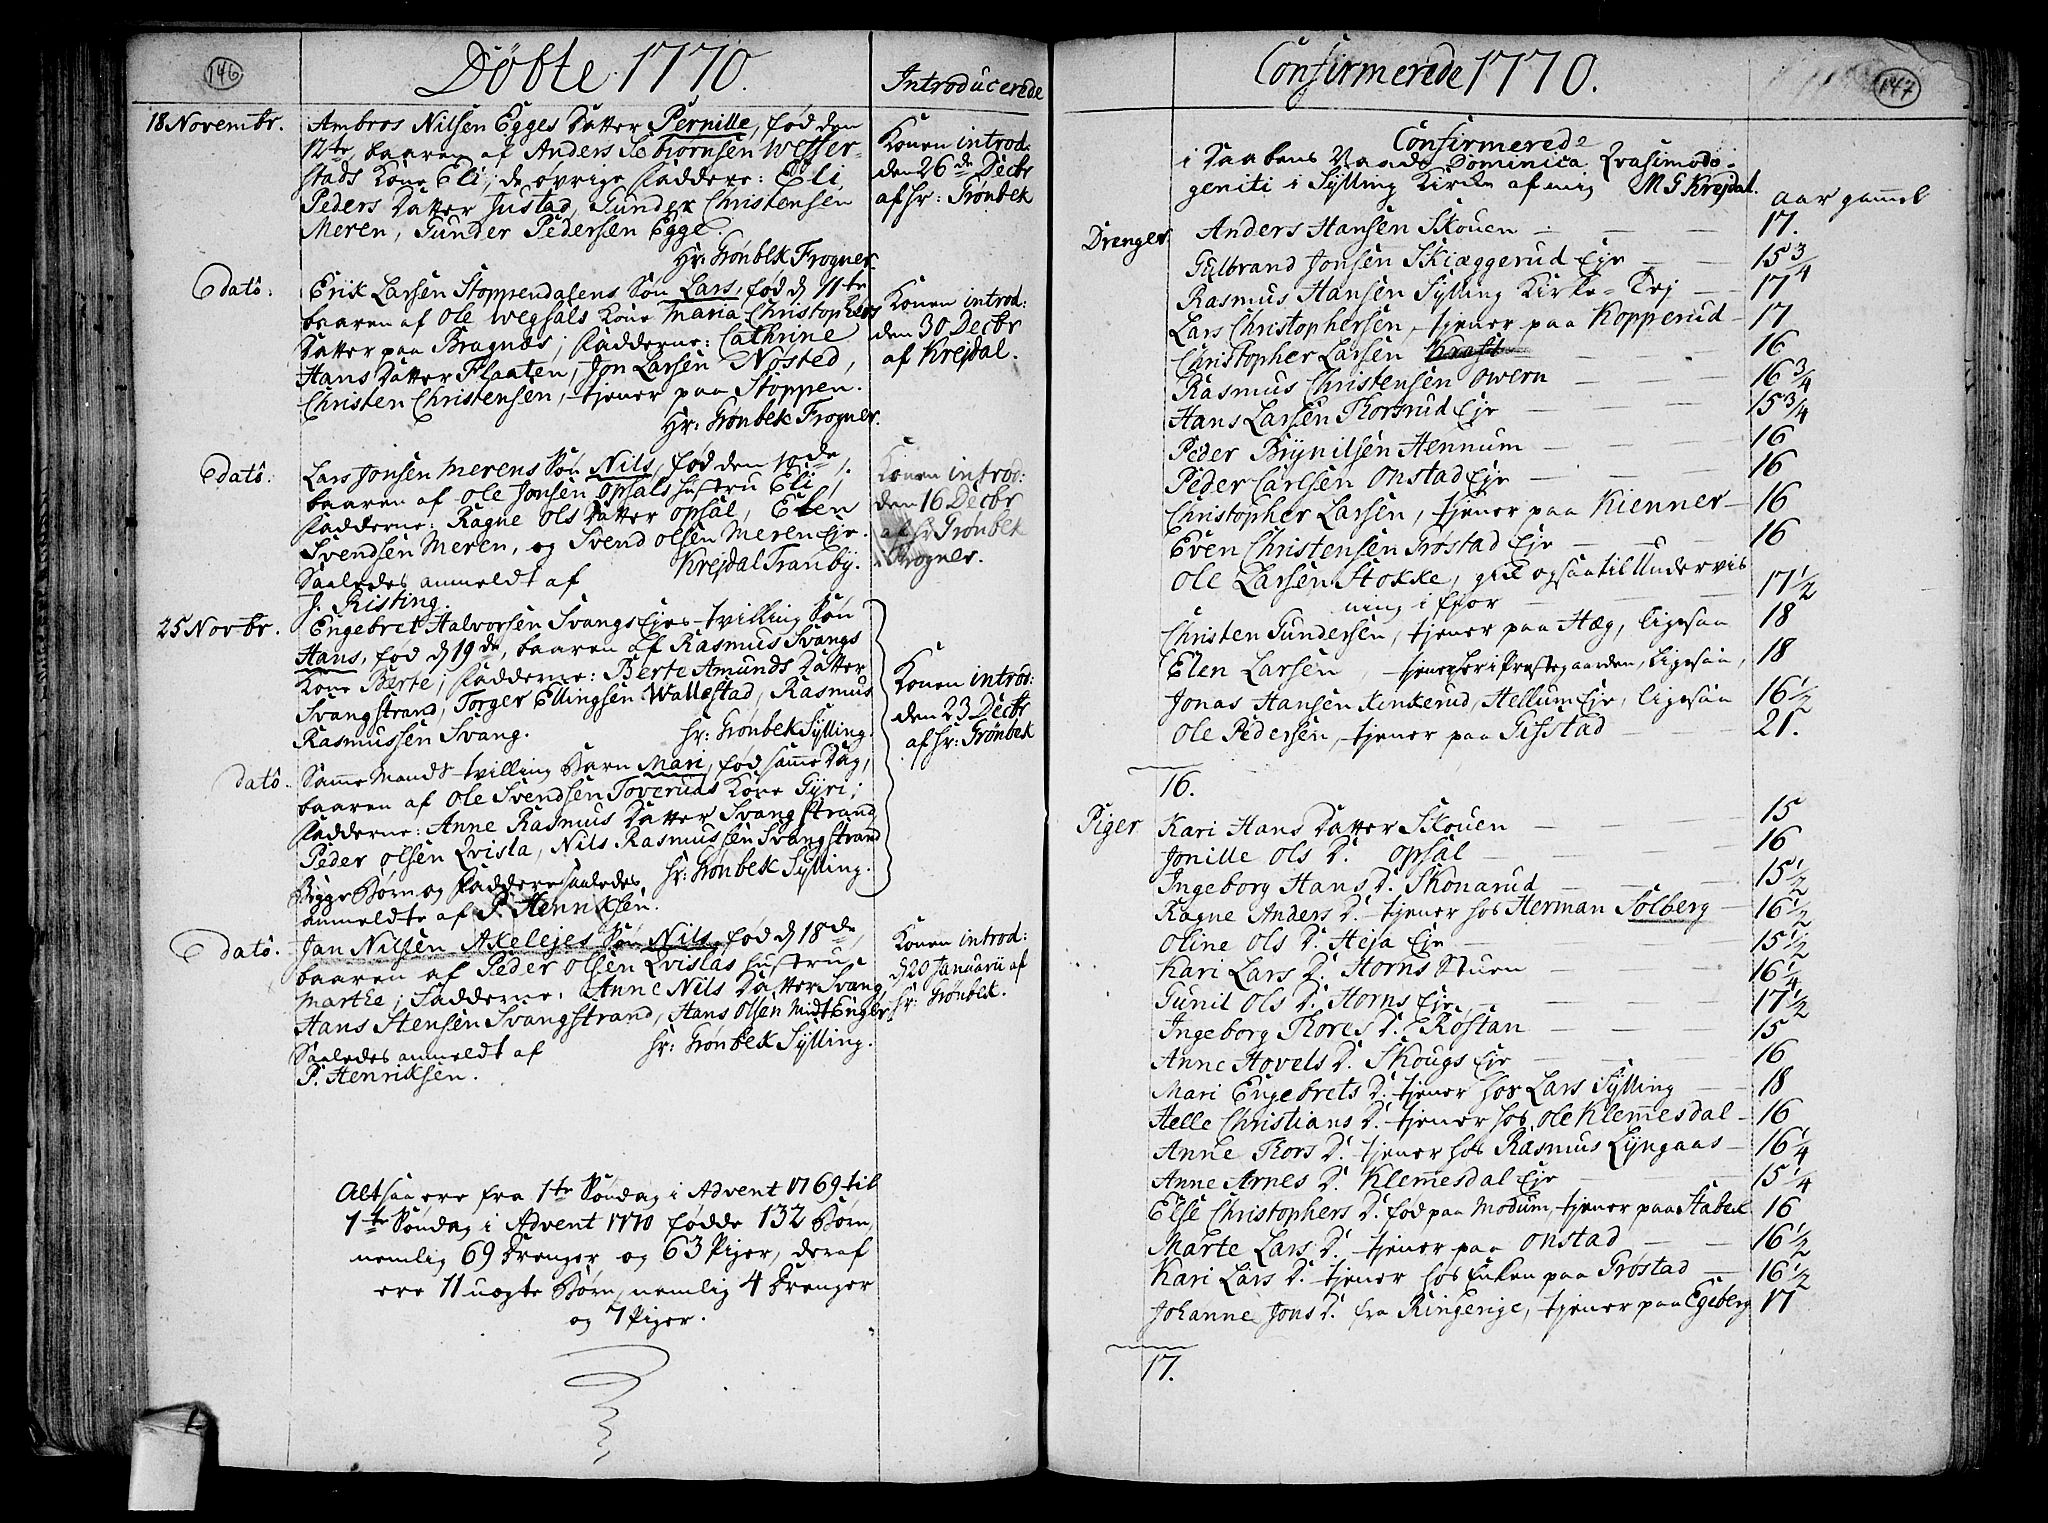 146
Döbte 1770.
Introducerede
18 Novembr.
Ambros Nilsen Egges Datter Pernille, fød den
12te, baaren af Anders Sebiørnsen Wefser-
stads Kone Eli; de øvrige Faddere: Eli
Peders Datter Justad, Gunder Christensen
Meren, Gunder Pedersen Egge.
Hr: Grønbek Frogner.
Konen introd:
den 26de Decbr
af Hr: Grønbek
E dato.
Erik Larsen Stoppendalens Søn Lars, fød d 11te
baaren af Ole Wegsals Kone Maria Christophers
Datter paa Bragnæs; Fadderne: Cathrine
Hans Datter Flaaten, Jon Larsen Nøsted,
Christen Christensen, tjener paa Stoppen.
Hr: Grønbek Frogner.
Konen introd:
den 30 Decbr
af Krejdal.
E dato.
Lars Jonsen Merens Søn Nils, fød den 10de,
baaren af Ole Jonsen Opsals Hustru Eli;
Fadderne: Ragne Ols Datter Opsal, Elen
Svendsen Meren, og Svend Olsen Meren Eje.
Saaledes anmeldt af
Krejdal Tranby.
J. Kisting.
Konen introd:
den 16 Decbr
af Hr Grønbek
i Frogner.
25 Novbr.
Engebret Halvorsen Svangs Ejes tvilling Søn
Hans, fød d 19de, baaren af Rasmus Svangs
Kone Berte; Fadderne: Berte Amunds Datter
Svangstrand, Torger Ellingsen Wallestad, Rasmus
Rasmussen Svang.
Hr: Grønbek Sylling.
Konen introd:
den 23 Decbr
af Hr: Grønbek
dato.
Samme Mands tvilling Barn Mari, fød samme Dag,
baaren af Ole Svendsen Toveruds Kone Gyri;
Fadderne: Anne Rasmus Datter Svangstrand
Peder Olsen Qvisla, Nils Rasmussen Svangstrand
Hr: Grønbek Sylling.
Begge Børn og Faddere saaledes
anmeldte af P. Henriksen.
E dato.
Jan Nilsen Akelejes Søn Nils, fød d 18de,
baaren af Peder Olsen Qvislas Hustru
Marthe; Fadderne: Anne Nils Datter Svang
Hans Stensen Svangstrand, Hans Olsen Midt Enger
Saaledes anmeldt af
Hr: Grønbek Sylling.
P. Henriksen.
Konen introd:
d 20 Januarii af
Hr: Grønbek.
Altsaa ere fra 1te Søndag i Advent 1769 til
1te Søndag i Advent 1770 fødde 132 Børn,
nemlig 69 Drenger og 63 Piger, deraf
ere 11 uægte Børn, nemlig 4 Drenger
og 7 Piger.
147
Confirmerede 1770.
Confirmerede
i Daabens Naade Dominica Qvasimodo-
geniti i Sylling Kirke af mig M G Krejdal.
aar gammel
Drenger
Anders Hansen Skouen — 17.
Gulbrand Jonsen Skiæggerud Eje — 15 3/4
Rasmus Hansen Sylling Kirke-Eej — 17
Lars Christophersen, tjener paa Kopperud — 17
Christopher Larsen — 16
Rasmus Christensen Owern — 16 3/4
Hans Larsen Thorsrud Eje — 15 3/4
Peder Brynilsen Hennum — 16
Peder Carlsen Onstad Eje — 16
Christopher Larsen, tjener paa Kienner — 16
Even Christensen Grøstad Eje — 16
Ole Larsen Stokke, gik ogsaa til Undervis
ning i fior — 17 1/2
Christen Gundersen, tjener paa Hæg, ligesaa 18
Elen Larsen, tjener her i Præstegaarden, ligesaa, 18
Jonas Hansen Kinkerud, Hellum Eje, ligesaa 16 1/2
Ole Pedersen, tjener paa Gifstad 21.
16.
Piger
Kari Hans Datter Skouen — 15
Jonille Ols D. Opsal — 16
Ingeborg Hans D. Skonarud — 15 1/2
Ragne Anders D. tjener hos Herman Solberg — 16 1/2
Oline Ols D. Heja Eje — 15 1/2
Kari Lars D. Horns Stuen — 16 1/4
Gunil Ols D. Horns Eje — 17 1/2
Ingeborg Thores D. Røstan — 15
Anne Hovels D. Skougs Eje — 16
Mari Engebrets D. tjener hos Lars Sylling — 18
Helle Christians D. tjener hos Ole Klemmesdal — 16
Anne Thors D. tjener hos Rasmus Lyngaas — 16 1/4
Anne Arnes D. Klemmesdal Eje — 15 1/4
Else Christophers D. fød paa Modum, tjener paa Stabek 16
Marte Lars D. tjener paa Onstad — 16 1/2
Kari Lars D. tjener hos Enken paa Grøstad — 16 1/2
Johanne Jons D. fra Ringerige, tjener paa Egeberg 17
17.